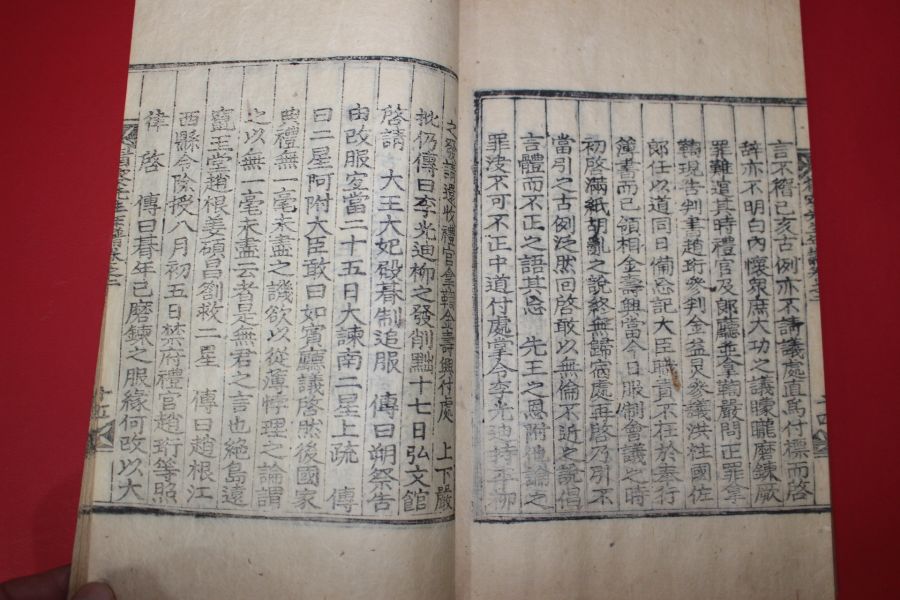 言不稽己亥古例亦不請議處直爲付標而啓
辞亦不明白內懷衆庶大功之議矇矓磨鍊厥
罪難逭其時禮官及郞廳並拿鞫嚴問正罪拿
鞫現告判書趙珩參判金益炅參議洪柱國佐
郞任以道同日備忘記大臣職責不在於奉行
簿書而已領相金壽興當今日服制會議之時
初啓滿紙胡亂之說終無歸宿處再啓乃引不
當引之古例泛然回啓敢以無倫不近之說倡
言體而不正之語其忘 先王之恩附他論之
罪决不可不正中道付處掌令李光迪持平柳
之發請還收禮官拿鞫金壽興付處 上下嚴
批仍傳曰李光迪柳之發削黜十七日弘文館
啓請 大王大妃殿朞制追服 傳曰朔祭告
由改服宜當二十五日大諫南二星上疏 傳
曰二星阿附大臣敢曰如賓廳議啓然後國家
典禮無一毫未盡之譏欲以從薄悖理之論謂
之以無一毫未盡云者是無君之言也絶島遠
竄玉堂趙根姜碩昌劄救二星 傳曰趙根江
西縣令除授八月初五日禁府禮官趙珩等照
律 啓 傳曰朞年已磨鍊之服緣何改以大